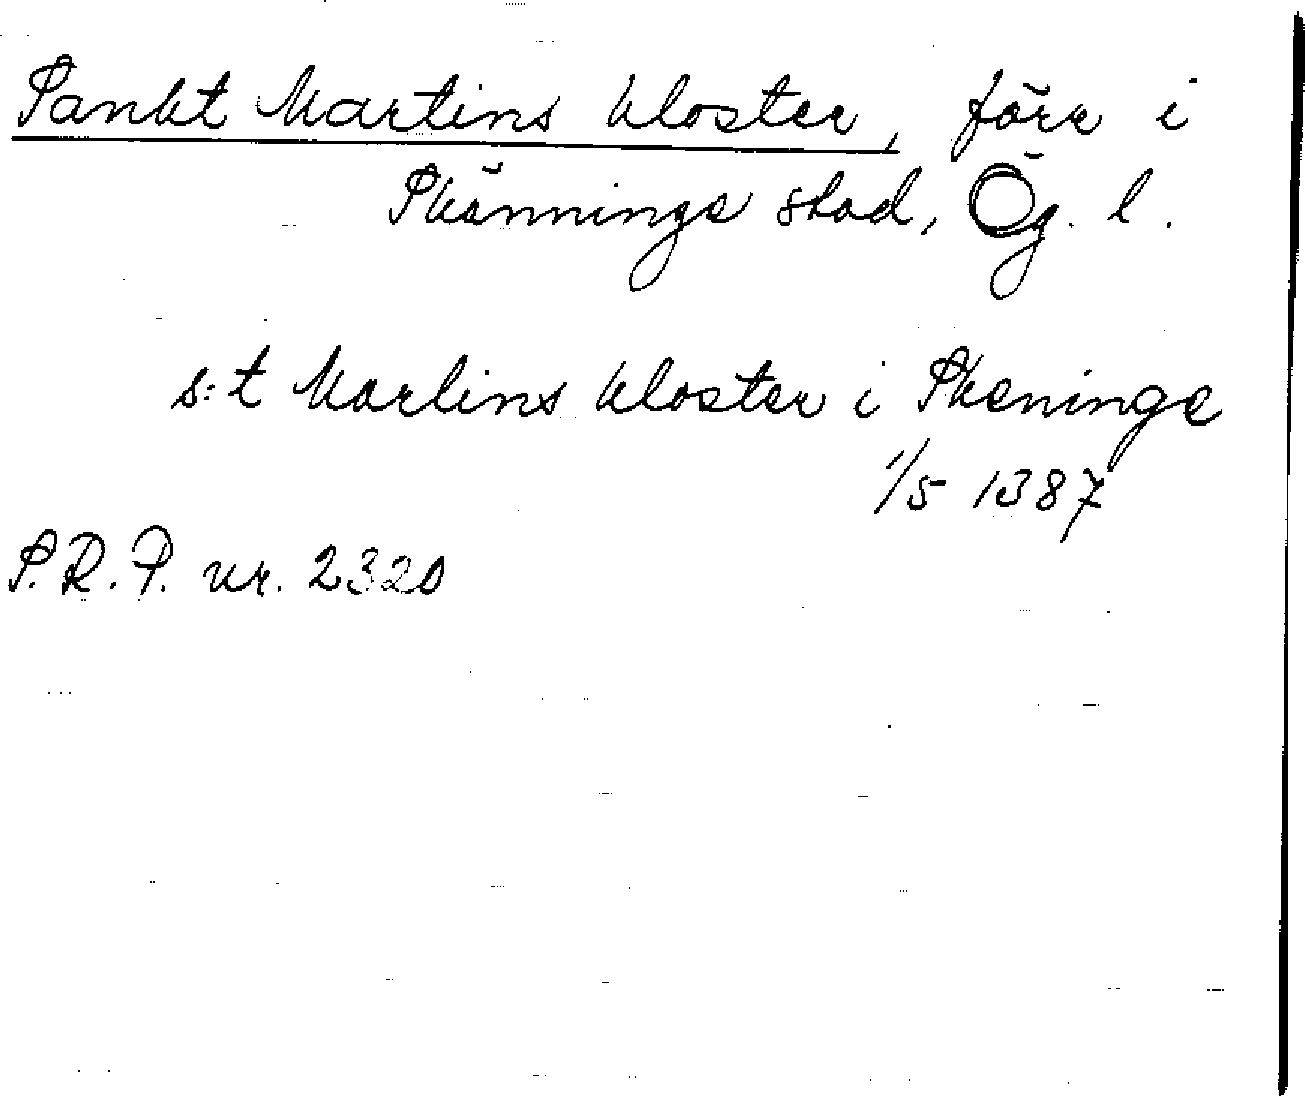 Sankt Martins kloster, förr i
Skänninge stad, Ög. l.
s:t Martins kloster i Skeninge
1/5 1387
S.R.P. nr. 2320